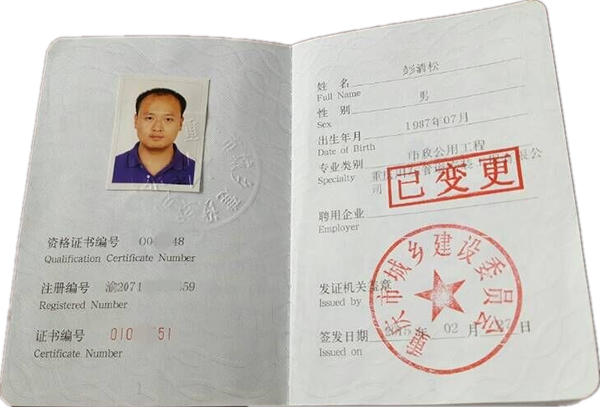 资格证书编号 00 48
Qualification Certificate Number
注册编号 渝2071 59
Registered Number
证书编号 010 51
Certificate Number
姓 名 彭清松
Full Name
性 别 男
Sex
出生年月 1987年07月
Date of Birth
专业类别 市政公用工程
Specialty
司
已变更
聘用企业
Employer
发证机关盖章
Issued by
市城乡建设委员会
签发日期 年 02 月 27 日
Issued on